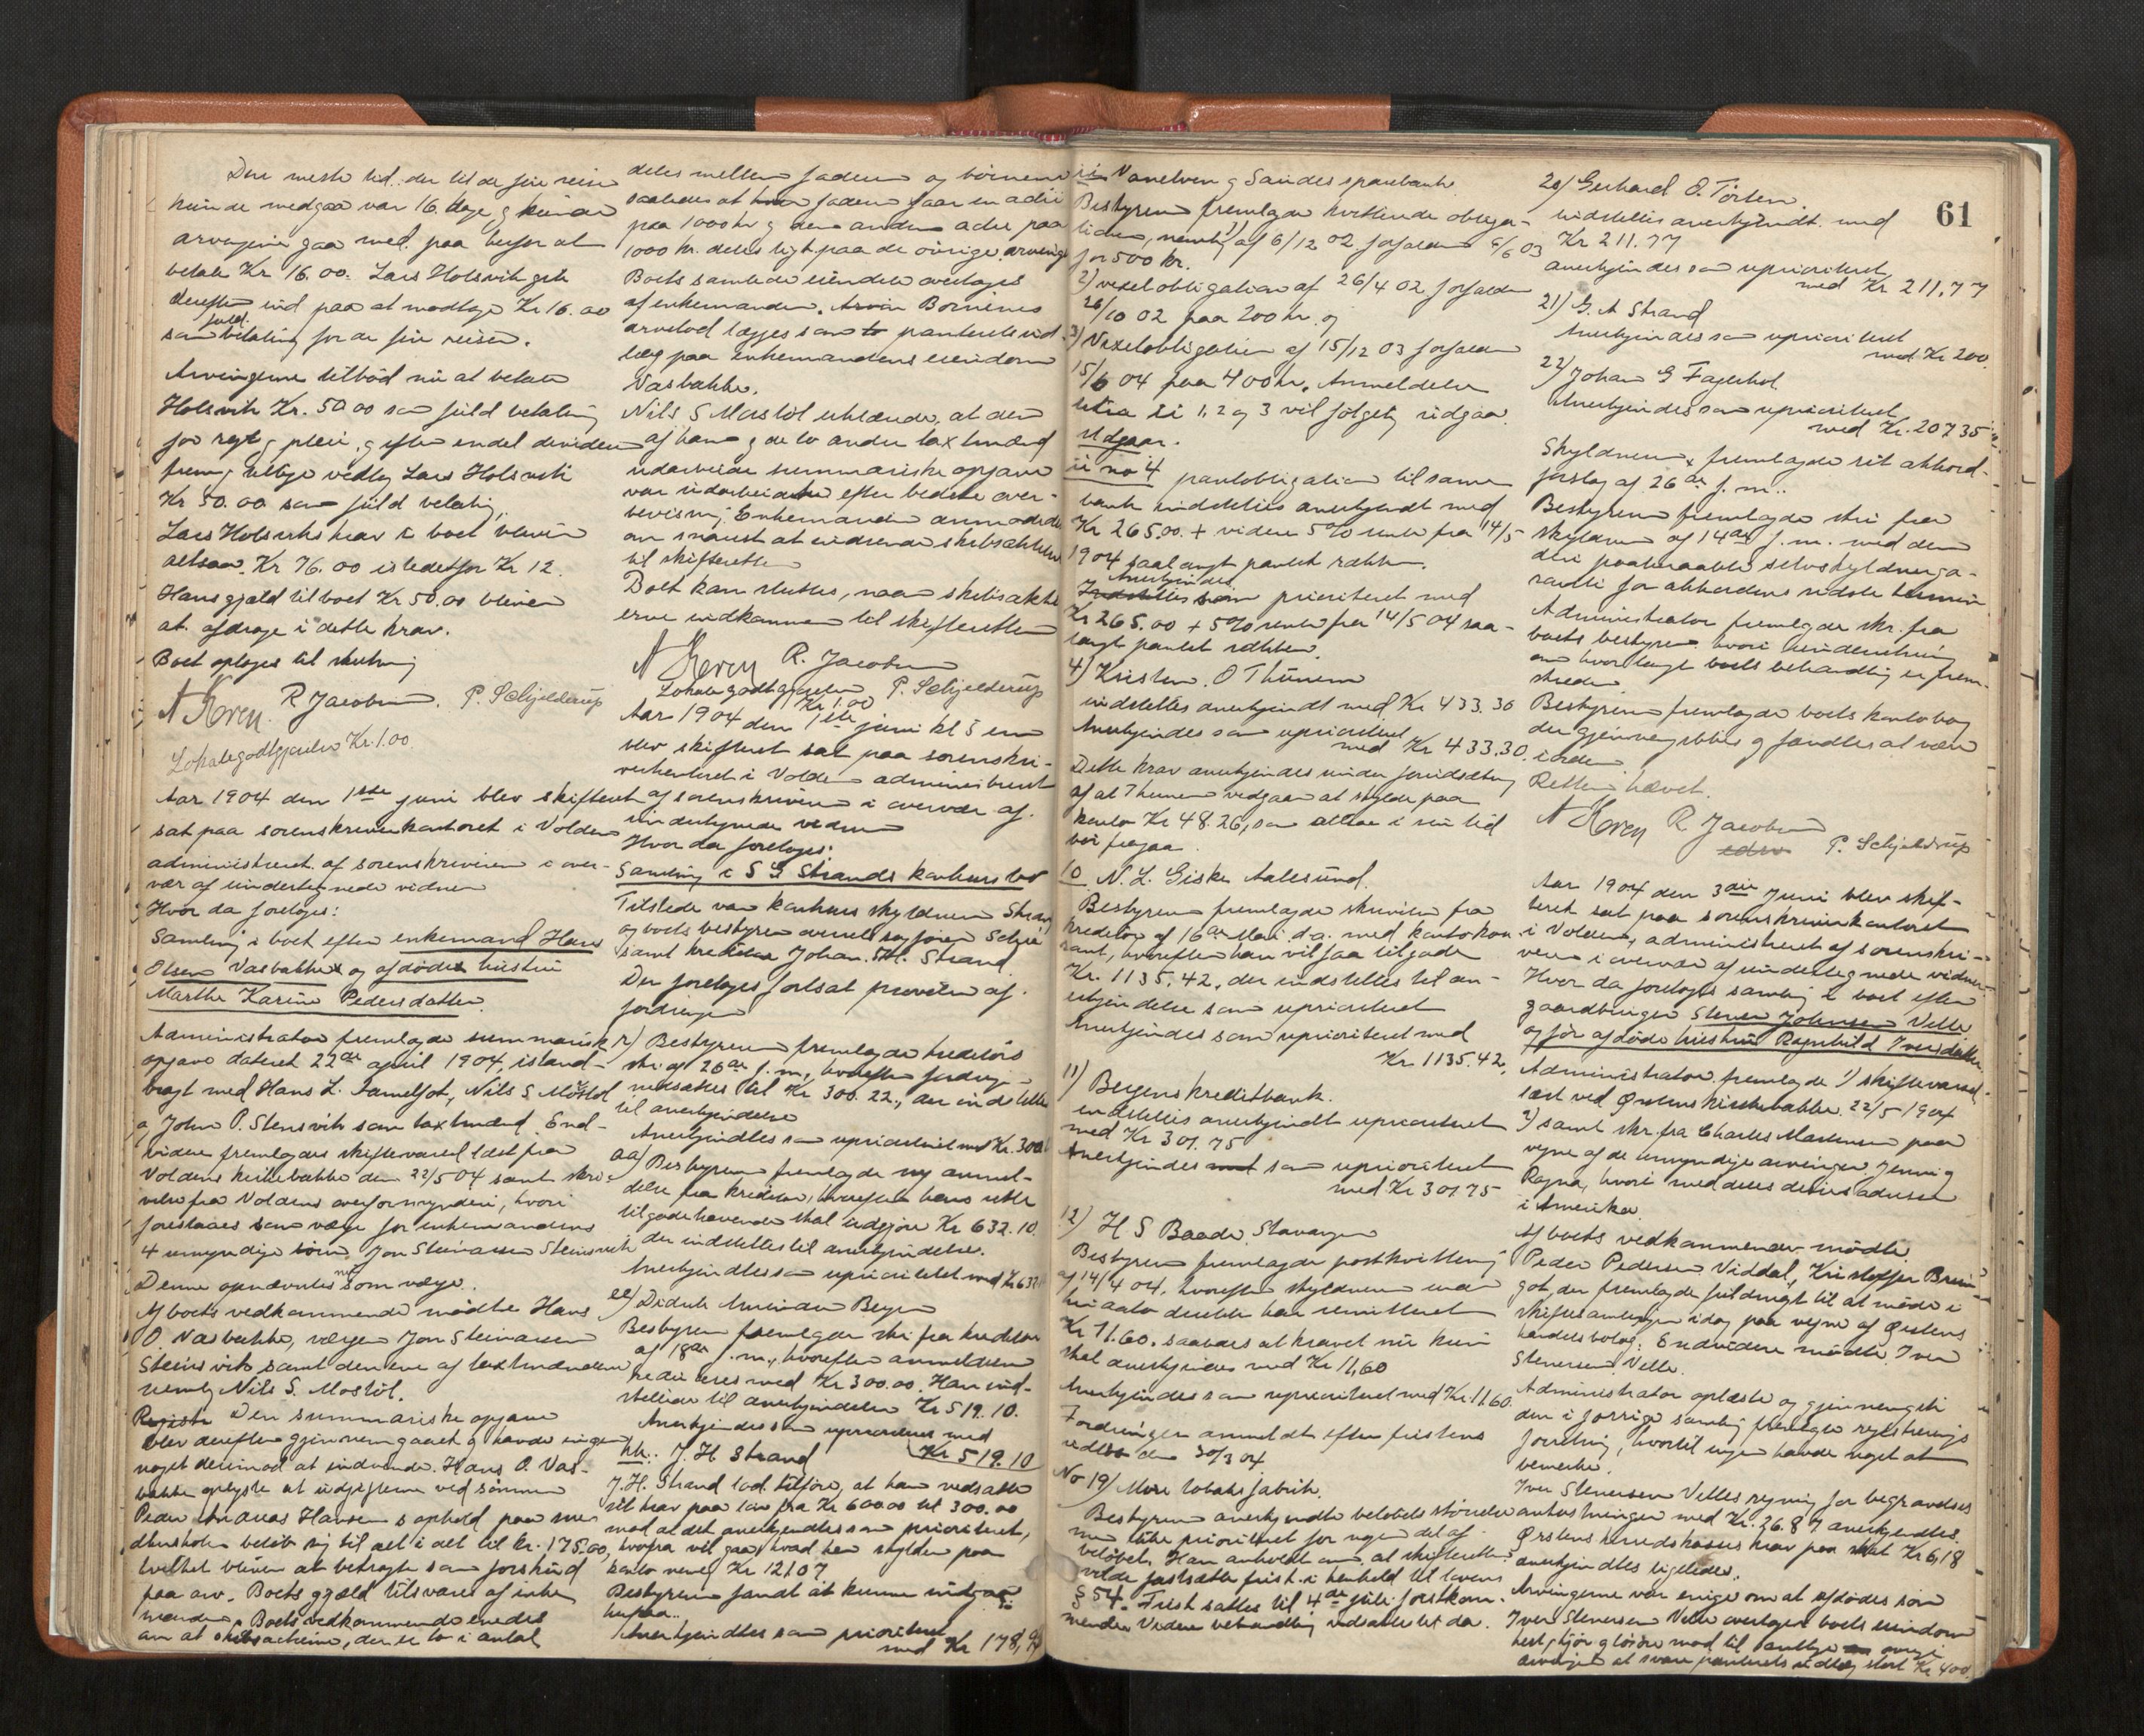 Den meste tid der til de fire reiser
kunde medgaa var 16 dage, g kunde
arvingerne gaa med paa herfor at
betale Kr 16.00. Lars Holsvik gik
derefter ind paa at modtage Kr 16.00
som fuld betaling for de fire reiser.
Arvingerne tilbød nu at betale
Holsvik Kr. 50.00 som fuld betaling
for røgt g pleie, g efter endel
frem g tilbage vedtog Lars Holsvik
Kr 50.00 som fuld betaling.
Lars Holsviks krav i boet bliver
altsaa Kr 76.00 istedetfor Kr 12.
Hans gjæld til boet Kr 50.00 bliver
at afdrage i dette krav.
Boet optoges til slutning
R Jacobsen. P. Schjelderup
Lokalegodtgjørelse Kr. 1.00
Aar 1904 den 1ste juni blev skifteret
sat paa sorenskriverkontoret i Volden
administreret af sorenskriveren i over-
vær af undertegnede vidner
Hvor da foretoges:
Samling i boet efter enkemand Hans
Olsen Vasbakke og afdøde hustru
Marthe Karine Pedersdatter.
Administrator fremlagde summarisk
opgave dateret 22de april 1904, istand-
bragt med Hans L. Nils S Mostøl
og John P. Stensvik som taxtmænd. End-
videre fremlagdes skiftevarsel læst fra
Voldens kirkebakke den 22/5 04 samt skri-
velse fra Voldens overformynderi, hvori
foreslaaes som værge for enkemandens
4 umyndige børn, Jon Steinarsen Steinsvik
Denne opnævntes som værge.
Af boets vedkommende mødte Hans
O. Vasbakke, værgen Jon Steinarsen
Steinsvik samt den ene af taxtmændene
nemlig Nils S. Mostøl.
Den summariske opgave
blev derefter gjennemgaaet g havde ingen
noget derimod at indvende. Hans O. Vas-
bakke oplyste at udgifterne ved sønnen
Peder Andreas Hansens ophold paa
beløb sig til alt i alt til kr. 175.00,
hvilket bliver at betragte som forskud
paa arv. Boets gjæld tilsvares af enke
manden. Boets vedkommende enedes
om at skibsactierne, der er to i antal
deles mellem faderen og børnene
saaledes at faderen faar en actie
paa 1000 kr g den anden actie paa
1000 kr. deles ligt paa de øvrige arvinger
Boets samlede eiendele overtages
af enkemanden. Børnenes
arvelod lægges som panterets ud-
læg paa enkemandens eiendom
Vasbakke.
Nils S Mostøl erklærede, at den
af ham g de to andre taxtmænd
udarbeide summariske opgave
var udarbeidet efter bedste over-
bevisning. Enkemanden anmodedes
om snarest at indsende skibsaktierne
til skifteretten
Boet kan sluttes, naar skibsakti-
erne indkommer til skifteretten
R. Jacobsen
Lokalegodtgjørelse P. Schjelderup
Kr 1.00
Aar 1904 den 1ste juni kl 5 em
blev skifteret sat paa sorenskri-
verkontoret i Volden administreret
af sorenskriveren i overvær af
undertegnede vidner
Hvor da foretoges:
Samling i S G Strands konkursbo
Tilstede var konkursskyldneren Strand
og boets bestyrer overretssagfører
samt kreditor Johan. H. Strand.
Der foretoges fortsat prøvelse af
fordringer
r) Bestyreren fremlagde kreditors
skr. af 26de f.m., hvorefter fordringen
nedsættes til Kr 300.22, der indstilles
til anerkjendelse
Anerkjendtes som uprioriteret med Kr. 300
aa) Bestyreren fremlagde ny anmel-
delse fra kreditor, hvorefter hans rette
tilgodehavende skal udgjøre Kr 632.10
der indstilles til anerkjendelse.
Anerkjendtes som uprioritetet med Kr 632
ee) Didrik Bergen
Bestyreren fremlagde skr fra kreditor
af 18de f.m., hvorefter anmeldelsen
reduceres med Kr 300.00. Han ind-
stillede til anerkjendelse Kr 519.10.
Anerkjendes som uprioriteret med
Kr 519.10
hh: J. H Strand
J. H. Strand lod tilføre, at han nedsatte
sit krav paa løn fra Kr 600.00 til 300.00
mod at det anerkjendtes som prioriteret,
hvorfra vil gaa, hvad han skylder paa
konto nemlig Kr 121.07
Bestyreren fandt at kunne indgaa
herpaa.
Anerkjendtes som prioriteret
med Kr 178,93
Vanelven g Sandes sparebank
Bestyreren fremlagde kvitterede obliga-
tioner, nemlig 1) af 6/12 02 forfalden 6/6 03
for 500 kr.
2) vexelobligation af 26/4 02 forfalden
26/10 02 paa 200 kr. og
3) Vexelobligation af 15/12 03 forfalden
15/6 04 paa 400 kr. Anmeldelse
litra ii 1, 2 og 3 vil følgelig udgaa.
Udgaar.
ii no 4 pantobligation til samme
bank indstilles anerkjendt med
Kr 265.00. + videre 5% rente fra 14/5
1904 saalangt pantet rækker.
Anerkjendes
prioriteret med
Kr 265.00 + 5% rente fra 14/5 04 saa-
langt pantet rækker.
4) Kristen O Thunem
indstilles anerkjendt med Kr 433.30
Anerkjendes som uprioriteret
med Kr 433.30.
Dette krav anerkjendes under forudsætning
af at Thunem vedgaar at skylde paa
konto Kr 48.26, som altsaa i sin tid
bør fragaa.
10 N. L. Giske Aalesund.
Bestyreren fremlagde skrivelse fra
kreditor af 16de Mai d.a. med kontokou-
rant, hvorefter han vil faa tilgode
Kr. 1135.42, der indstilles til an-
erkjendelse som uprioriteret
Anerkjendes som uprioriteret med
Kr 1135.42.
11) Bergens kreditbank.
indstilles anerkjendt uprioriteret
med Kr 301.75
Anerkjendes som uprioriteret
med Kr 301.75
12) H S Baade Stavanger
Bestyreren fremlagde postkvittering
af 14/4 04, hvorefter skyldneren
har remitteret
Kr 71.60. saaledes at kravet nu kun
skal anerkjendes med Kr 11,60
Anerkjendes som uprioriteret med Kr. 11.60.
Fordringer anmeldt efter fristens
udløb den 30/3 04.
No 19) Møre tobaksfabrik.
Bestyreren anerkjendte beløbets størrelse
men ikke prioritet for nogen del af
beløbet. Han anholdt om, at skifteretten
vilde fastsætte frist i henhold til lovens
§ 54. Frist sattes til 4de juli førstkom-
mende. Videre behandling udsattes til da.
61
20) Gerhard O. Tørlen.
indstilles anerkjendt med
Kr 211.77
anerkjendes som uprioriteret
med Kr 211.77
21) G. A Strand
Anerkjendes som uprioriteret
med Kr 200.
22) Johan G Fagerhol
Anerkjendes som uprioriteret
med Kr. 207 35
Skyldneren fremlagde sit akkord-
forslag af 26de f.m..
Bestyreren fremlagde skr fra
skyldneren af 14de f.m. med den
deri paateknede selvskyldnerga-
ranti for akkordens sidste termin.
Administrator fremlagde skr. fra
boets bestyrer hvori
om hvorlangt boets behandling er frem-
skreden
Bestyreren fremlagde boets kontobog
der gjennemgikkes g fandtes at være
i orden.
Retten hævet.
R. Jacobsen
P. Schjelderup
Aar 1904 den 3die Juni blev skif-
teret sat paa sorenskriverkontoret
i Volden, administreret af sorenskri-
veren i overvær af undertegnede vidner
Hvor da foretoges samling i boet efter
gaardbruger Stener Johnsen Velle
og før afdøde hustru Ragnhild Iversdatter
Administrator fremlagde 1) skiftevarsel
læst ved Ørstens kirkebakke 22/5 1904
2) samt skr. fra Charles Martinsen paa
vegne af de umyndige arvinger Jenny g
Ragna, hvori meddeles deres adresse
i Amerika.
Af boets vedkommende mødte
Peder Pedersen Viddal, Kristoffer Brun-
got, der fremlagde fuldmagt til at møde i
skiftesamlingen idag paa vegne af Ørstens
handelsbolag. Endvidere mødte Iver
Stenersen Velle.
Administrator oplæste og gjennemgik
den i forrige samling fremlagte registrerings
forretning, hvortil ingen havde noget at
bemerke.
Iver Stenersen Velles regning for begravelses
omkostninger med Kr. 26.87 anerkjendtes.
Ørstens herredskasses krav paa skat Kr 6,18
anerkjendtes ligeledes.
Arvingerne var enige om at afdødes søn
Iver Stenersen Velle overtager boets eiendom
best. g løsøre mod til samtlige
arvinger at svare panterets udlæg stort Kr 400.